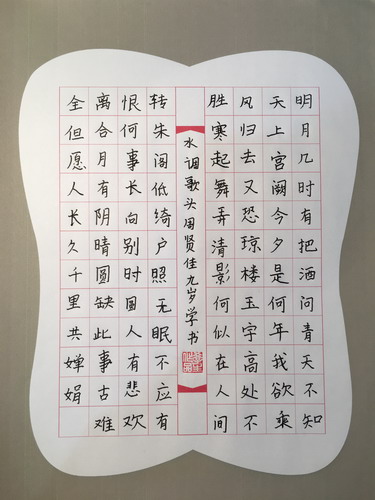 明月几时有把酒问青天不知
天上宫阙今夕是何年我欲乘
风归去又恐琼楼玉宇高处不
胜寒起舞弄清影何似在人间
水调歌头周贤佳九岁学书
转朱阁低绮户照无眠不应有
恨何事长向别时圆人有悲欢
离合月有阴晴圆缺此事古难
全但愿人长久千里共婵娟